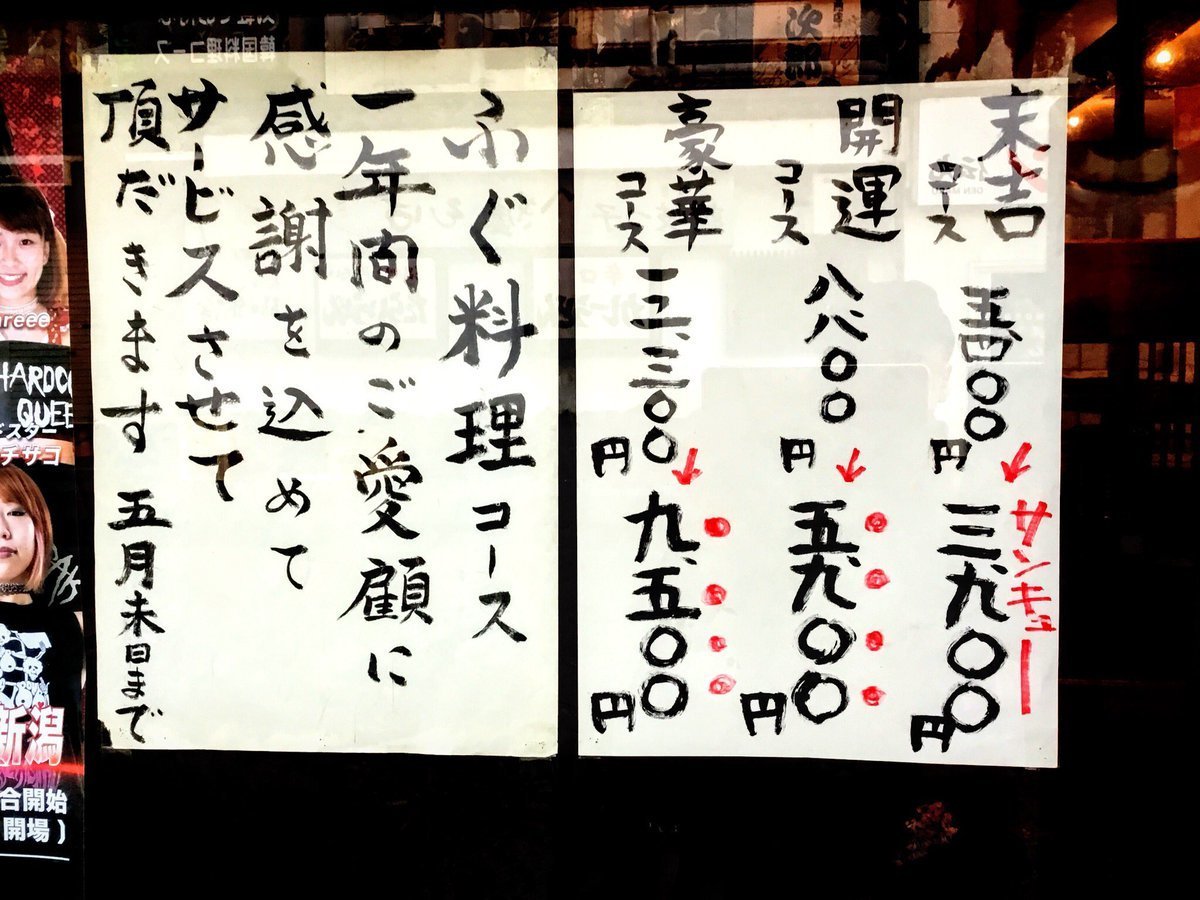 末吉
コース
五、四〇〇円
サンキュー
三、九〇〇円
開運
コース
八、八〇〇円
五、九〇〇円
豪華
コース
一二、三〇〇円
九、五〇〇円
ふぐ料理コース
一年間のご愛顧に
感謝を込めて
サービスさせて
頂だきます 五月末日まで
HARDCO
QUEE
チサコ
新潟
合開始
開場)